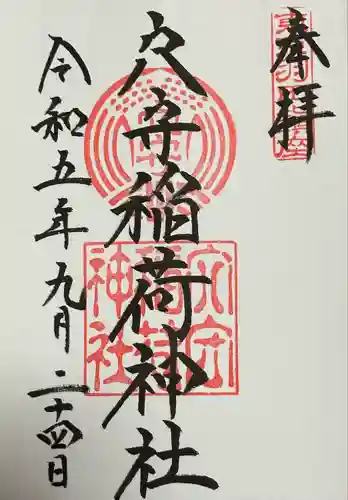 奉拝
東京羽田鎮座
穴守稲荷神社
穴守稲荷神社
令和五年九月二十四日